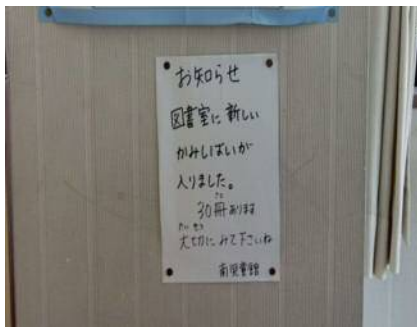 お知らせ
図書室に新しい
かみしばいが
入りました。
30冊あります
たい せつ
大切にみて下さいね
南図書館